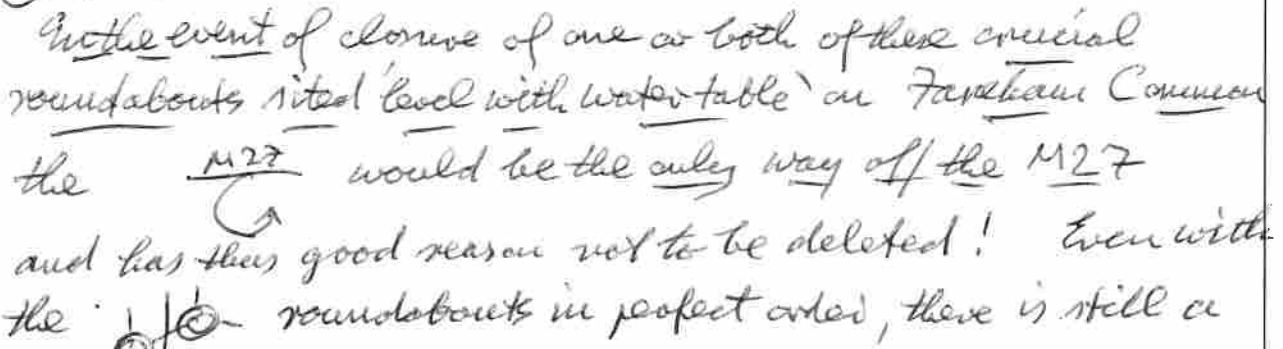 In the event of closure of one or both of these crucial
roundabouts sited 'level with water table' on Fareham Common
the M27 would be the only way off the M27
and has thus good reason not to be deleted! Even with
the roundabouts in perfect order, there is still a